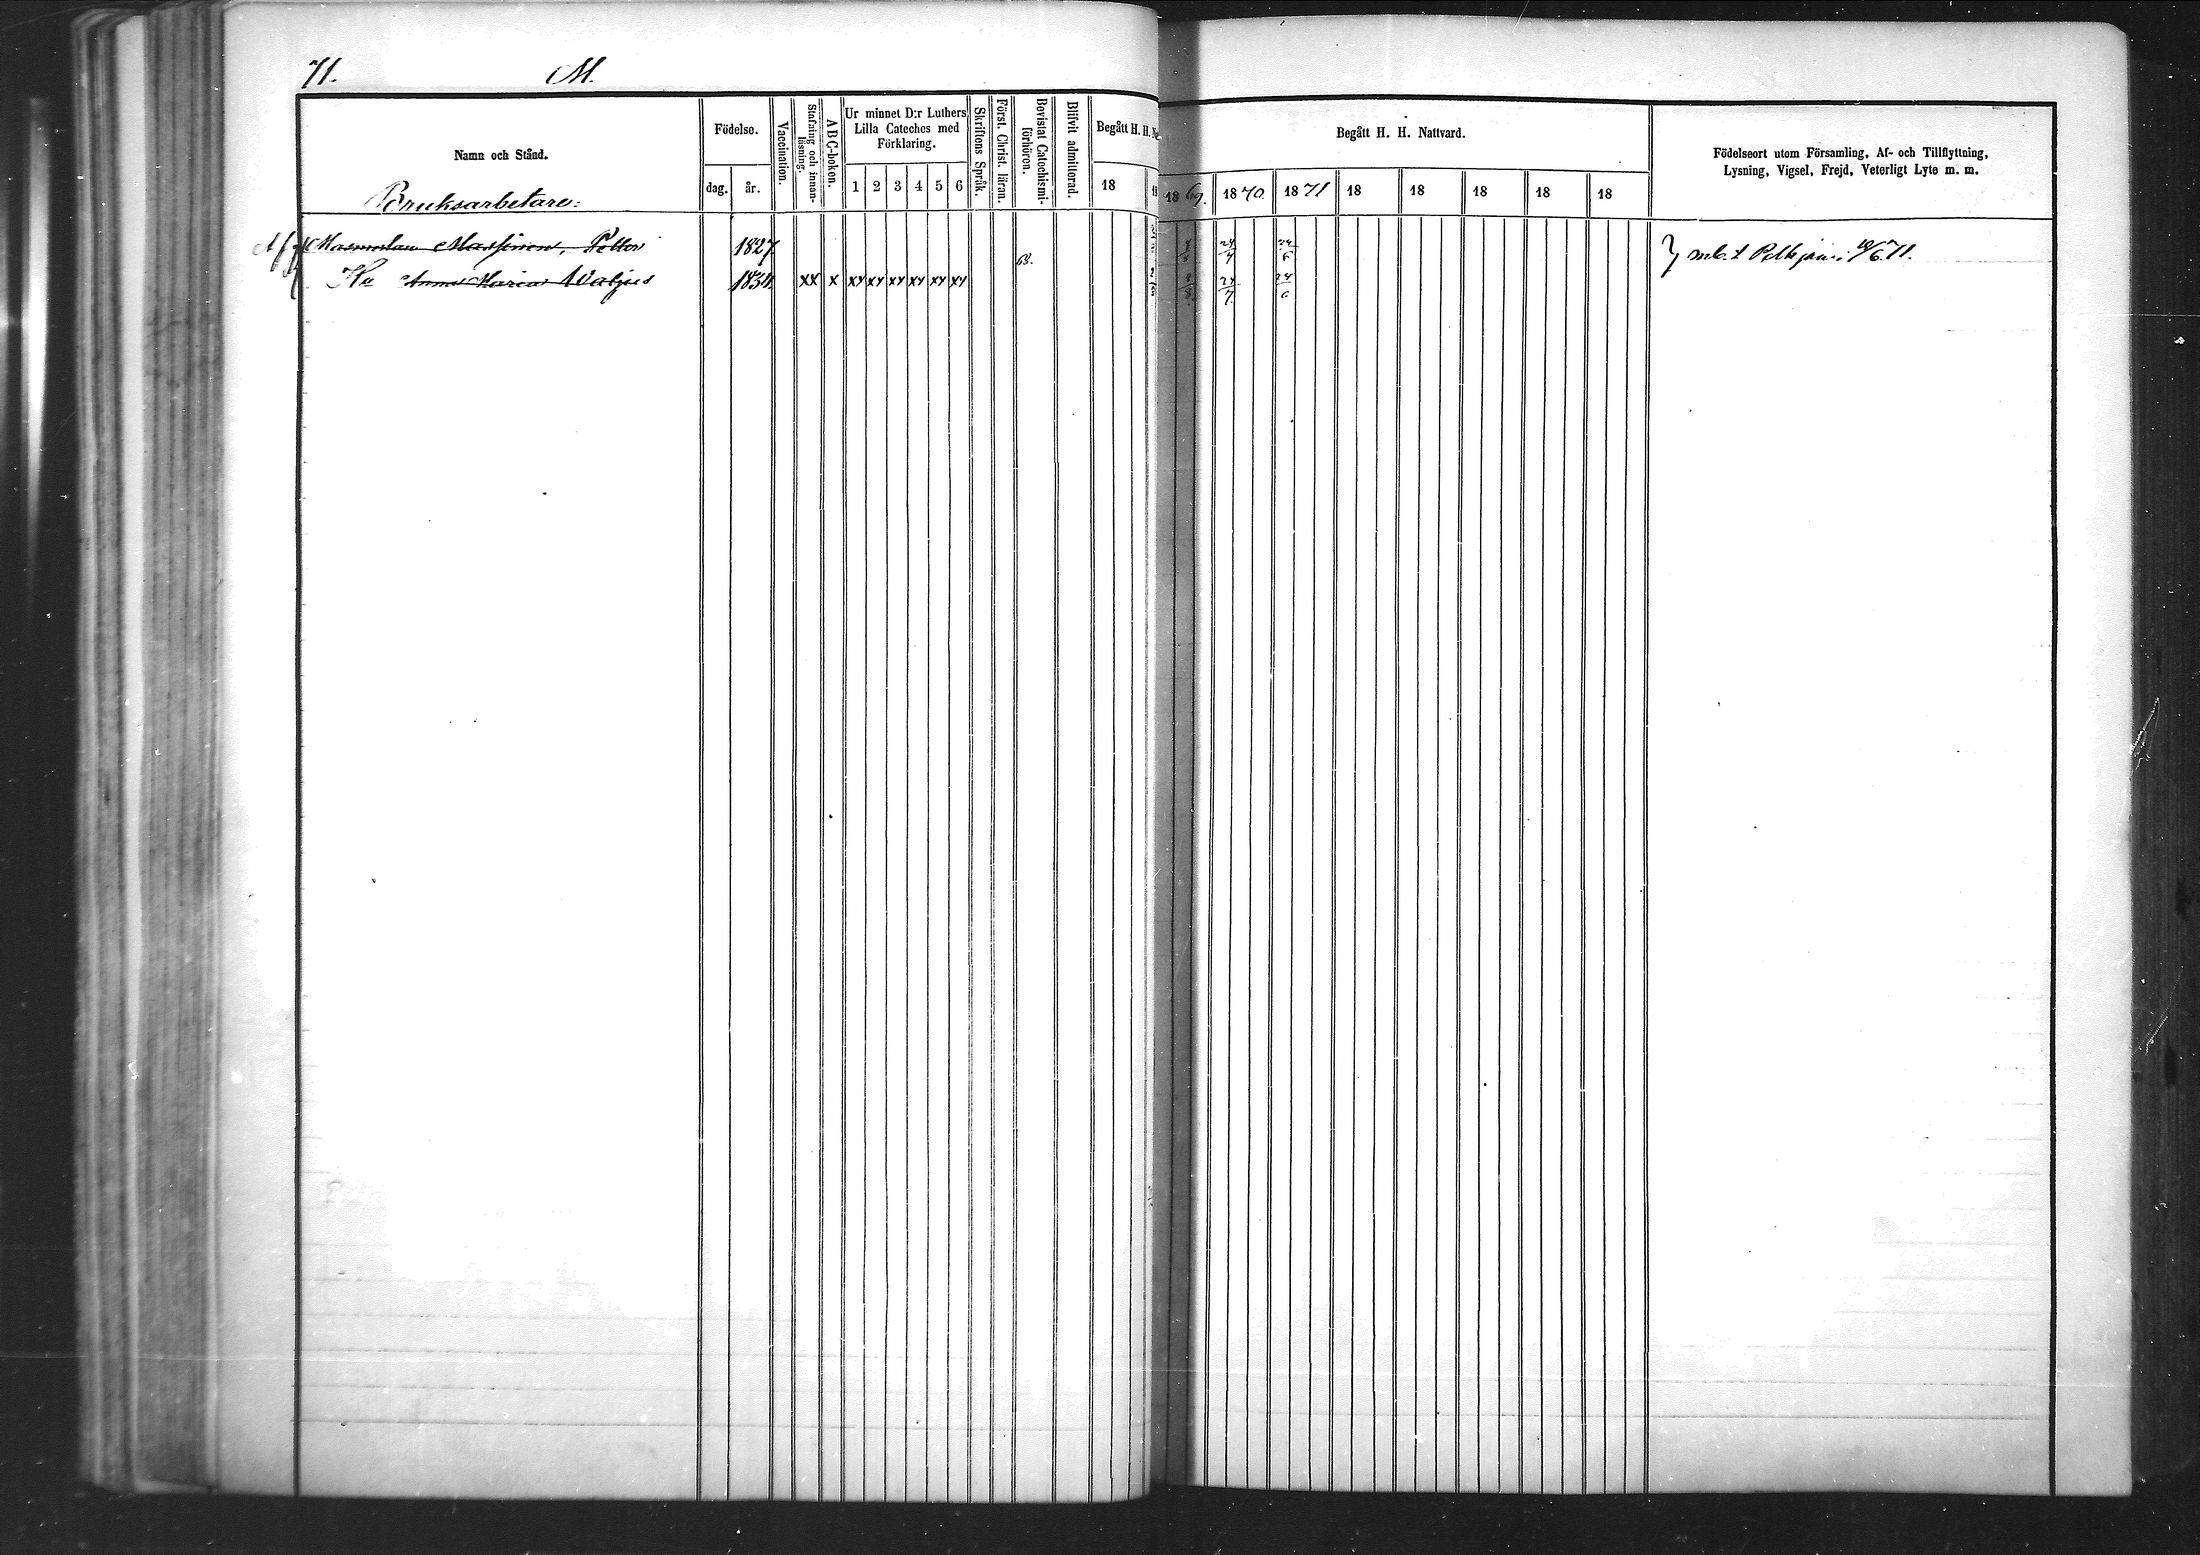 71. M.
Namn och Stånd.
Födelse.
dag. år.
Vaccination.
Stafning och innan-
läsning.
ABC-boken.
Ur minnet D:r Luthers
Lilla Cateches med
Förklaring.
1 2 3 4 5 6
Skriftens Språk.
Först. Christ. läran.
Bevistat Catechismi-
förhören.
Blifvit admitterad.
Begått H. H. Na
18
Begått H. H. Nattvard.
18 69. 1870. 1871 18 18 18 18 18
Födelseort utom Församling, Af- och Tillflyttning,
Lysning, Vigsel, Frejd, Veterligt Lyte m. m.
Bruksarbetare:
Petter 1827. 24/7 24/6 } Pelkjärvi 71.
Hu Anna Maria Waljus 1834. xx x xx xx xx xx xx xx 24/7. 24/6